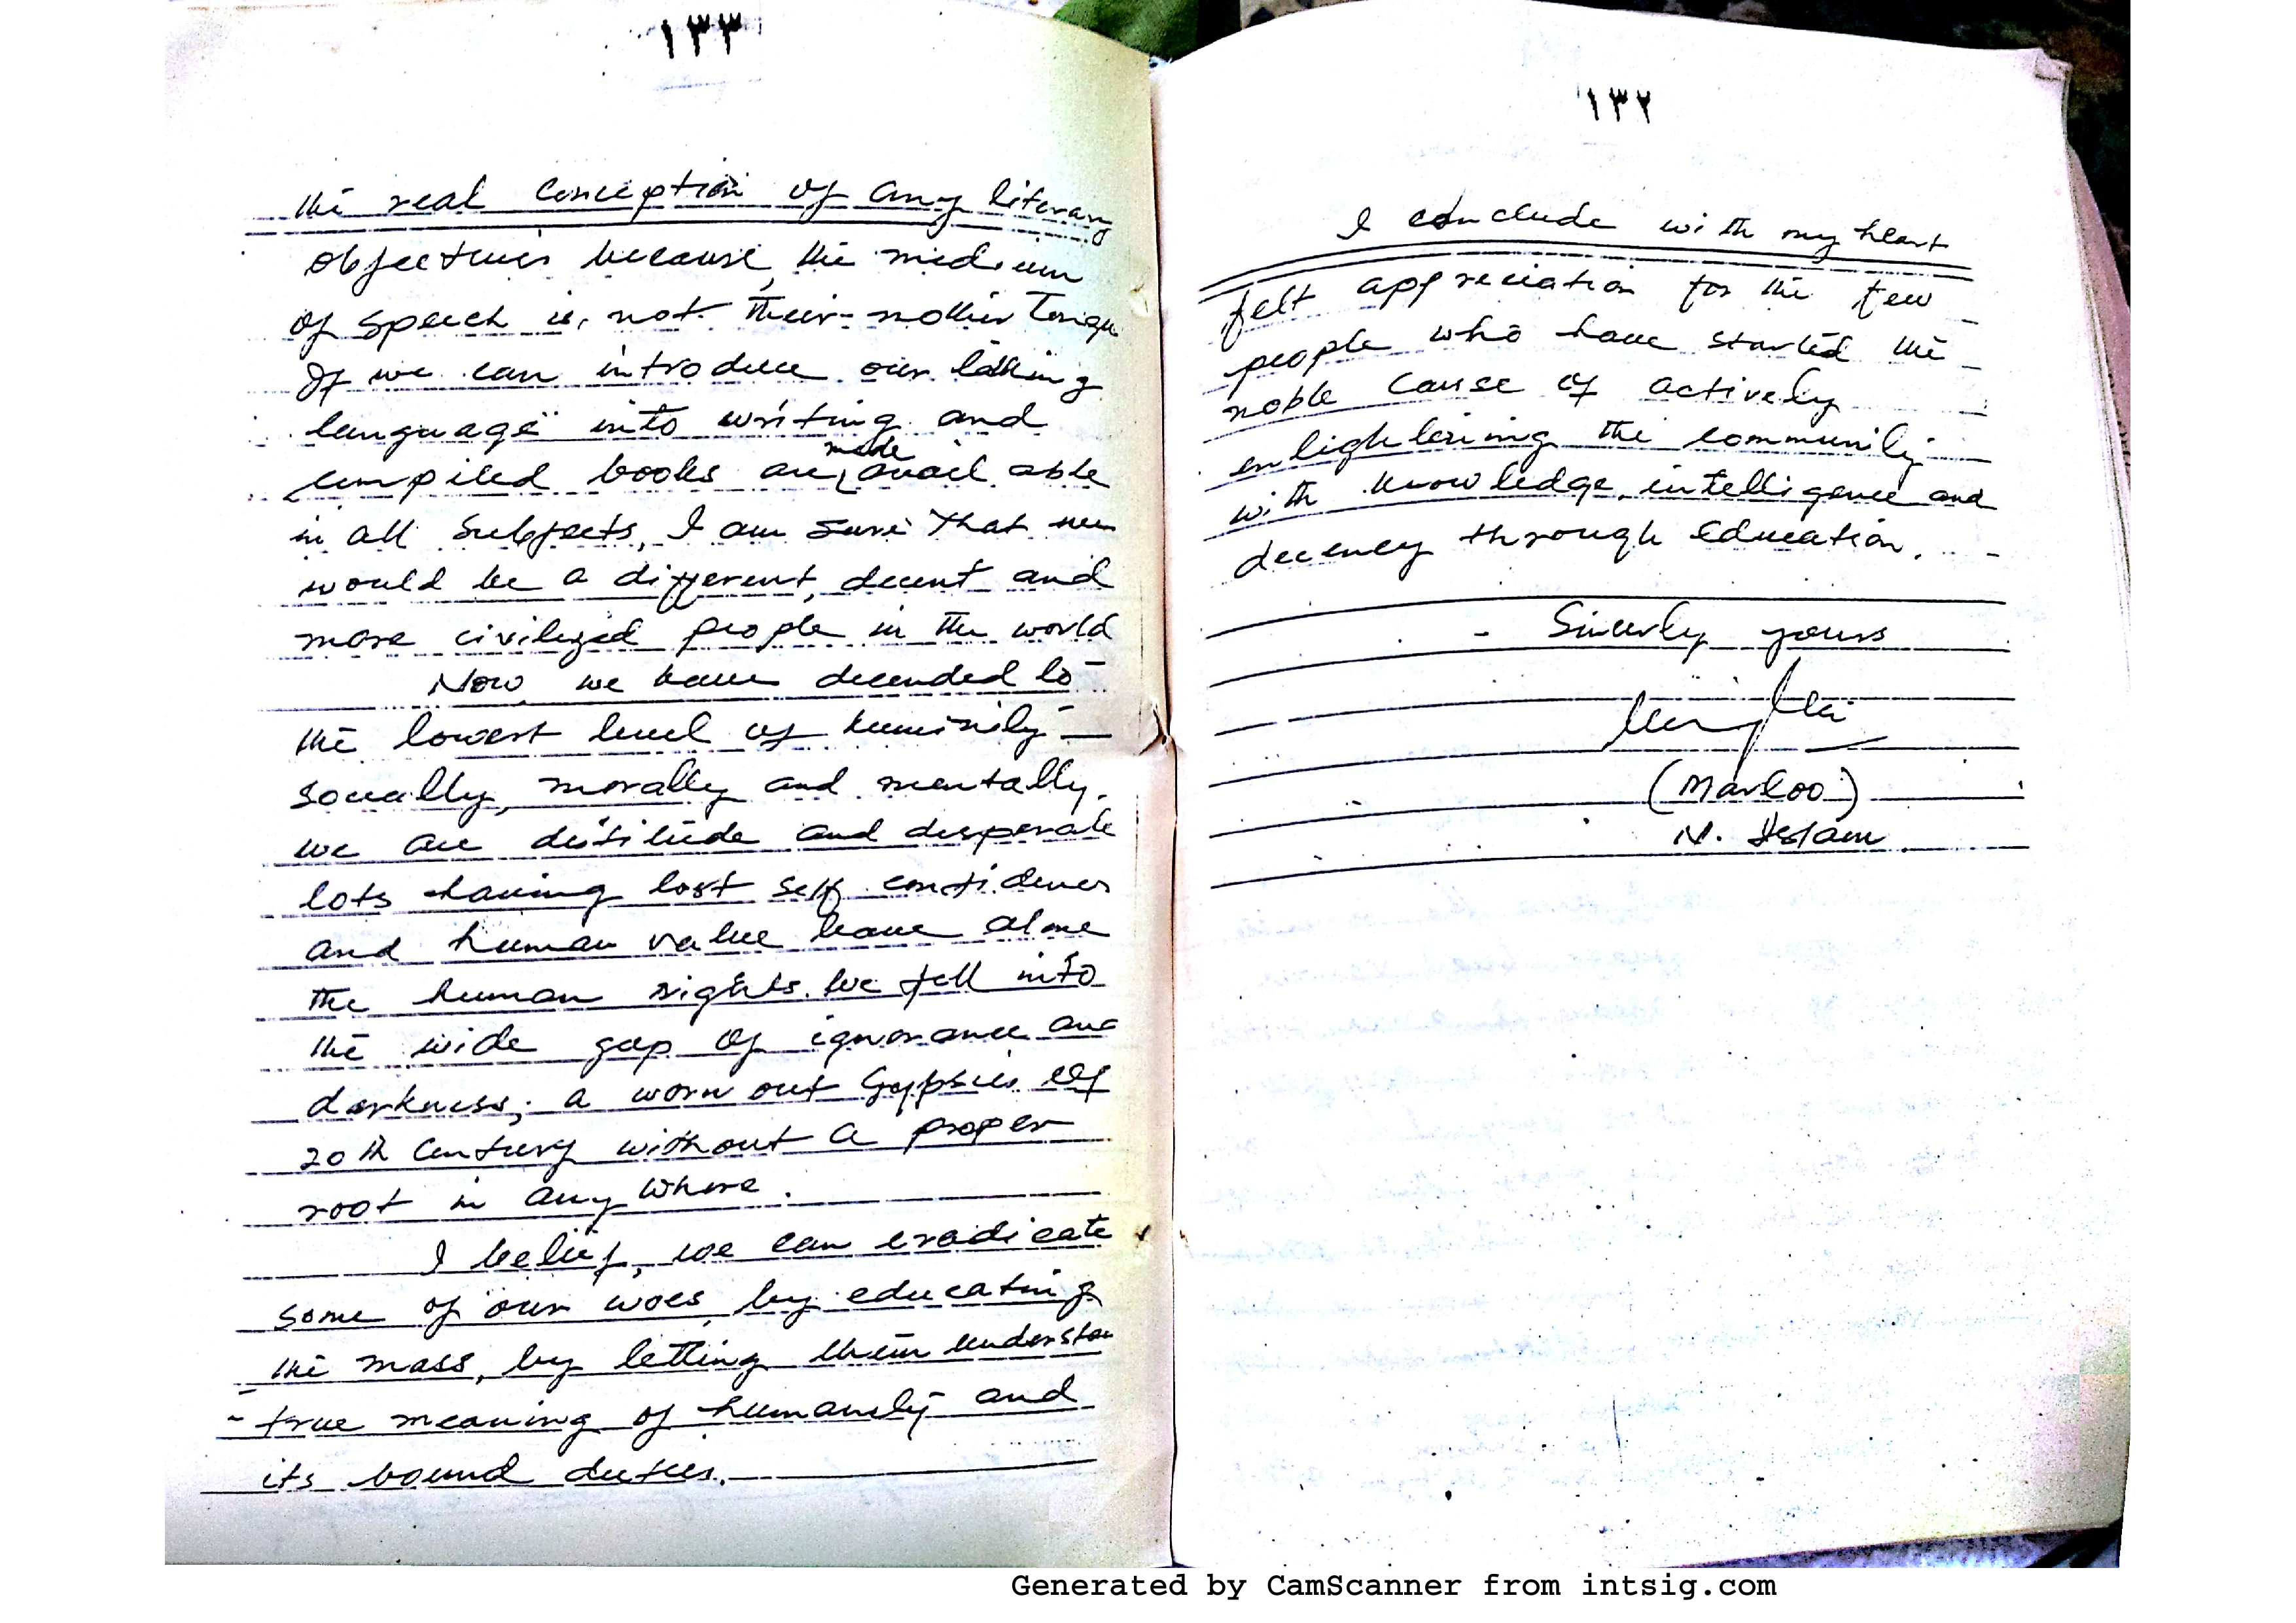 ١٣٣
the real conception of any literary
objectives because, the medium
of speech is, not their mother Tongue
If we can introduce our talking
language into writing and
compiled books are made avail able
in all subjects, I am sure that we
would be a different, decent and
more civilized people in the world
Now we have decended to
the lowest level of
socially, morally and mentally.
we are and desperate
lots having lost self confidence
and human value leave alone
the human rights. We fell into
the wide gap of ignorance and
darkness; a worn out Gyppsies of
20th Century without a proper
root in any where.
I belief, we can eradicate
some of our woes, by educating
the mass, by letting them understan
true meaning of humanity and
its bound duties.
١٣٢
I conclude with my heart
felt appreciation for the few
people who have started the
noble cause of actively
enlightening the community
with knowledge, intelligence and
decency through education.
Sincerly yours
(Markoo)
N. Islam
Generated by CamScanner from intsig.com